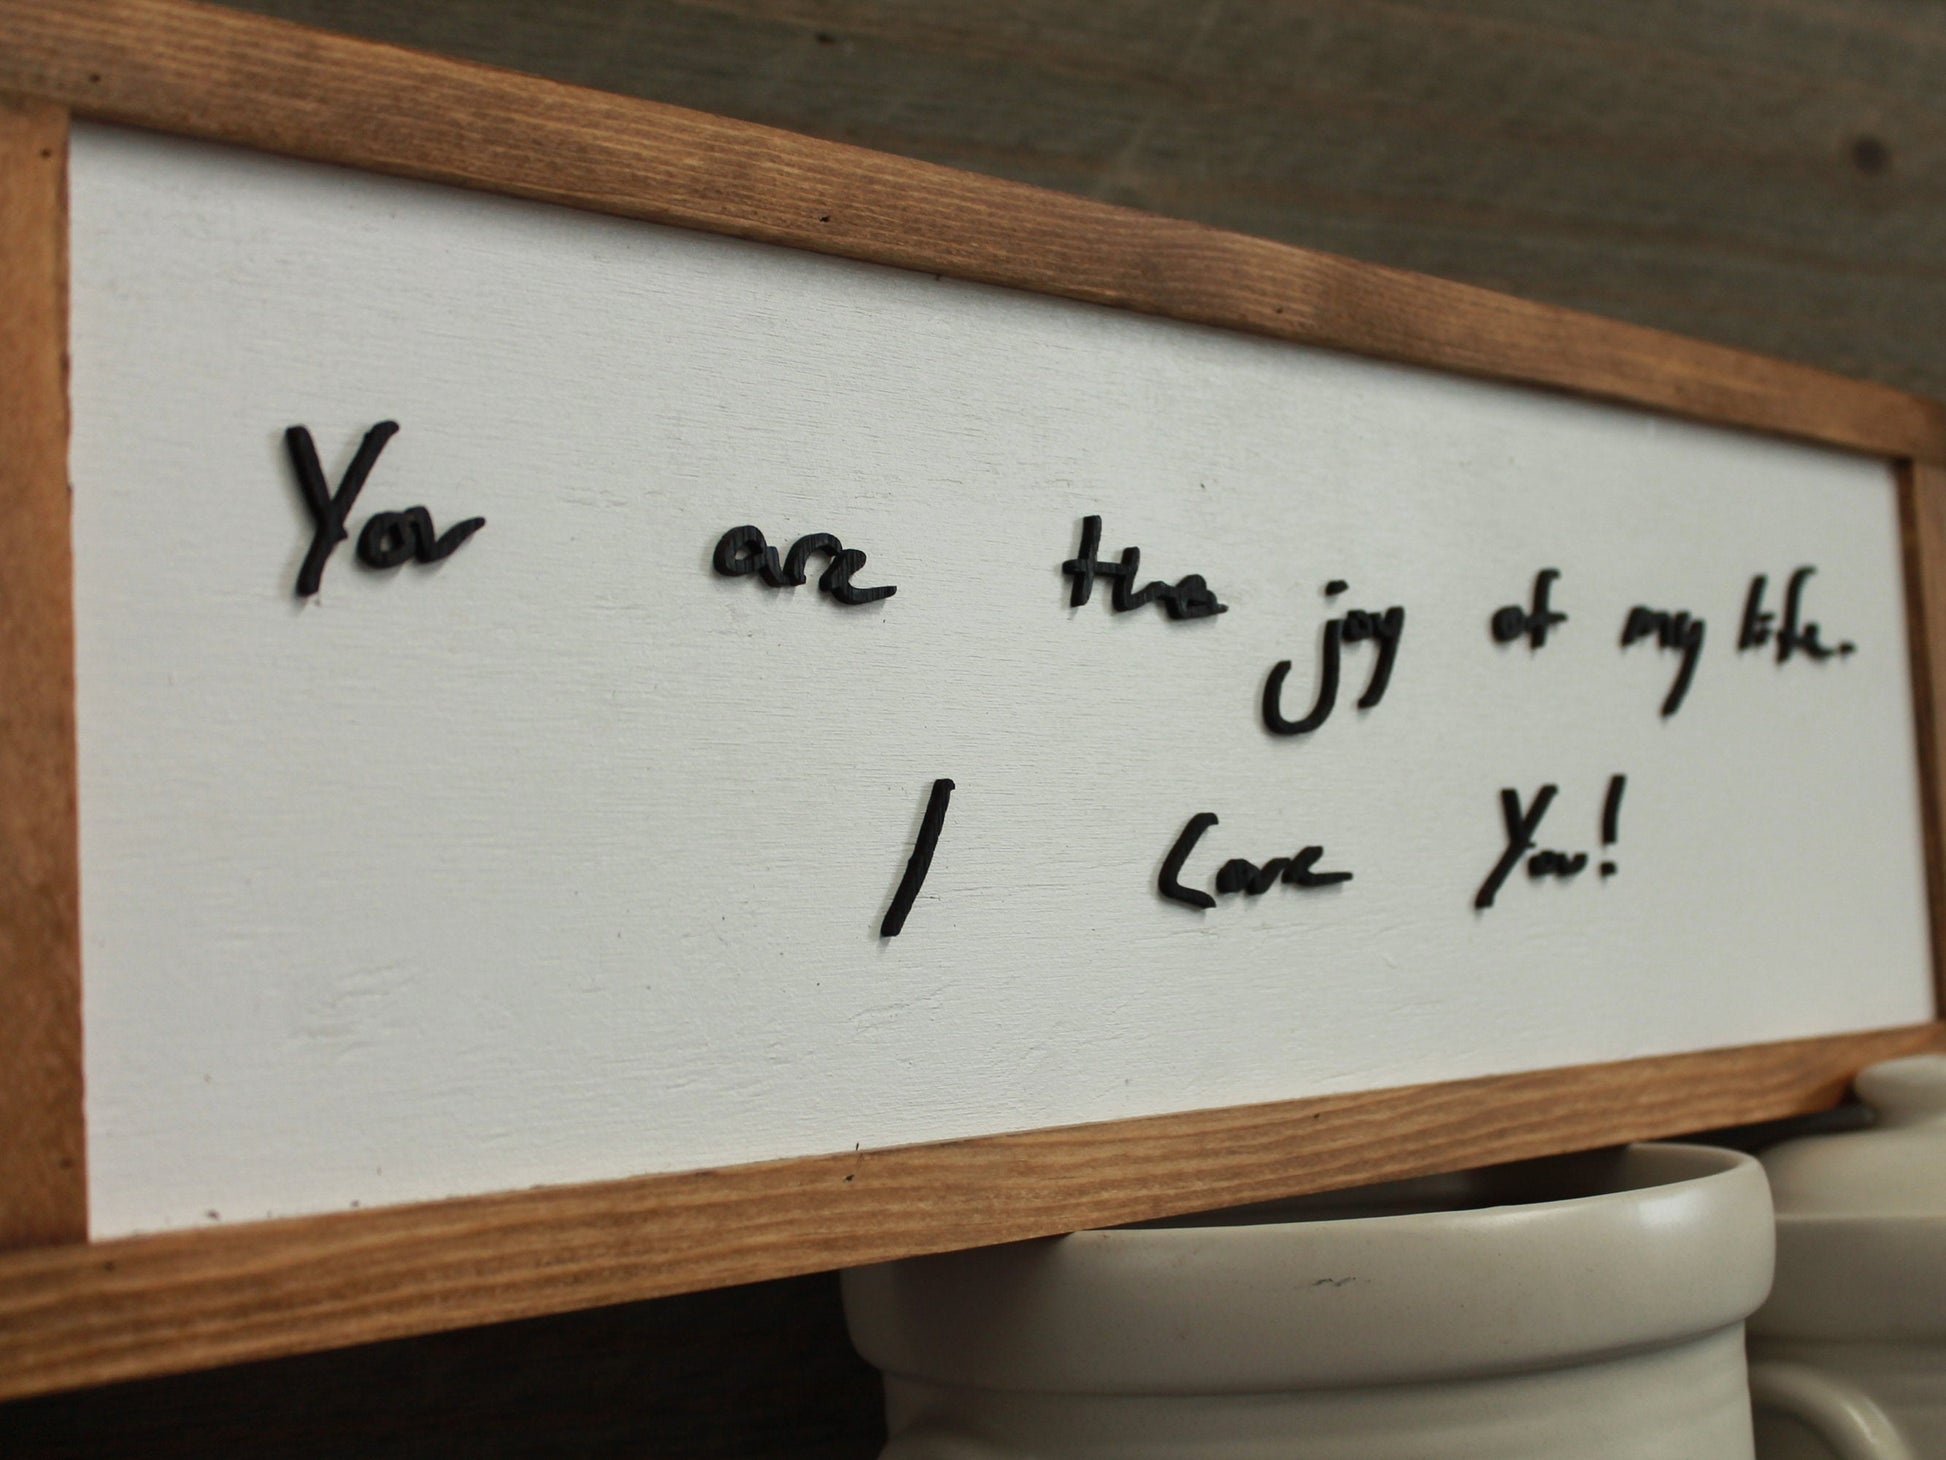 You are the joy of my life.
I Care You!